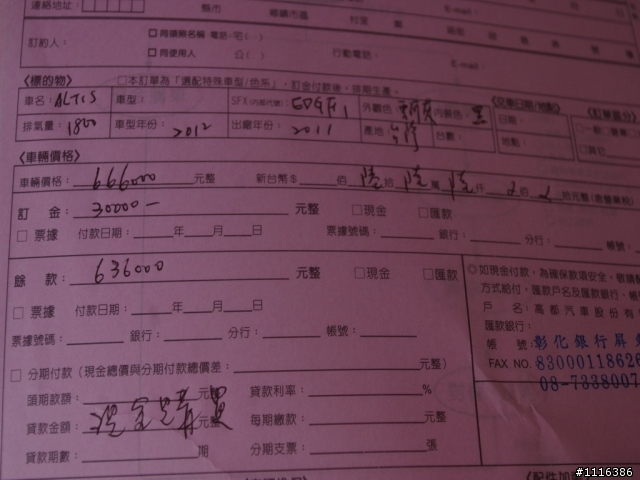 連絡地址：
縣市 鄉鎮市區 村里 鄰
E-mail：
訂約人：
□同領照名稱 電話-宅( )
□同使用人 公( ) 行動電話：
E-mail：
〈標的物〉 □本訂單為「選配特殊車型/色系」，訂金付款後，排期生產。
〈交車日期/地點〉 〈訂單區分〉
車名：ALTIS 車型： SFX(內部代號)： 外觀色： 內裝色：黑 日期：
排氣量：1800 車型年份：2012 出廠年份：2011 產地： 台數： 地點： □其它
〈車輛價格〉
車輛價格：666000 元整 新台幣$ 佰 陸 拾 陸 萬 陸 仟 佰 拾元整(含營業稅)
訂 金：30000- 元整 □現金 □匯款
□票據 付款日期： 年 月 日 票據號碼： 銀行： 分行： 帳號：
餘 款：636000 元整 □現金 □匯款
□票據 付款日期： 年 月 日
票據號碼： 銀行： 分行： 帳號：
□分期付款（現金總價與分期付款總價差： 元整）
頭期款額： 元 貸款利率： %
貸款金額： 元整 每期繳款： 元整
現金購買
貸款期數： 期 分期支票： 張
◎如現金付款，為確保款項安全，敬請
方式給付，匯款戶名及匯款銀行、帳
戶 名：高都汽車股份有
匯款銀行：
帳 號：彰化銀行屏
FAX NO. 83000118626
08-7338007
#1116386